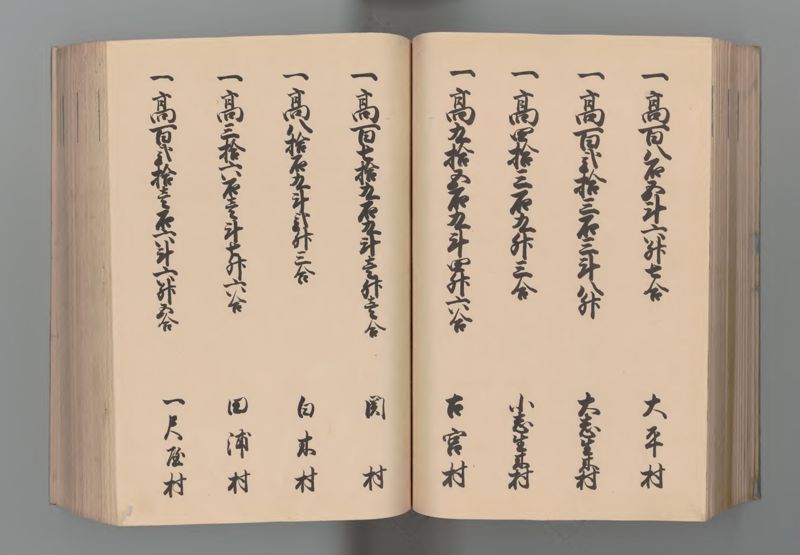 一高百八石五斗六升七合 大平村
一高百弐拾三石三斗八升 大志生木村
一高四拾三石九升三合 小志生木村
一高九拾五石九斗四升六合 古宮村
一高百七拾九石九斗壱升壱合 関村
一高八拾石九斗弐升三合 白木村
一高三拾六石壱斗七升六合 田浦村
一高百弐拾壱石六斗六升五合 一尺屋村